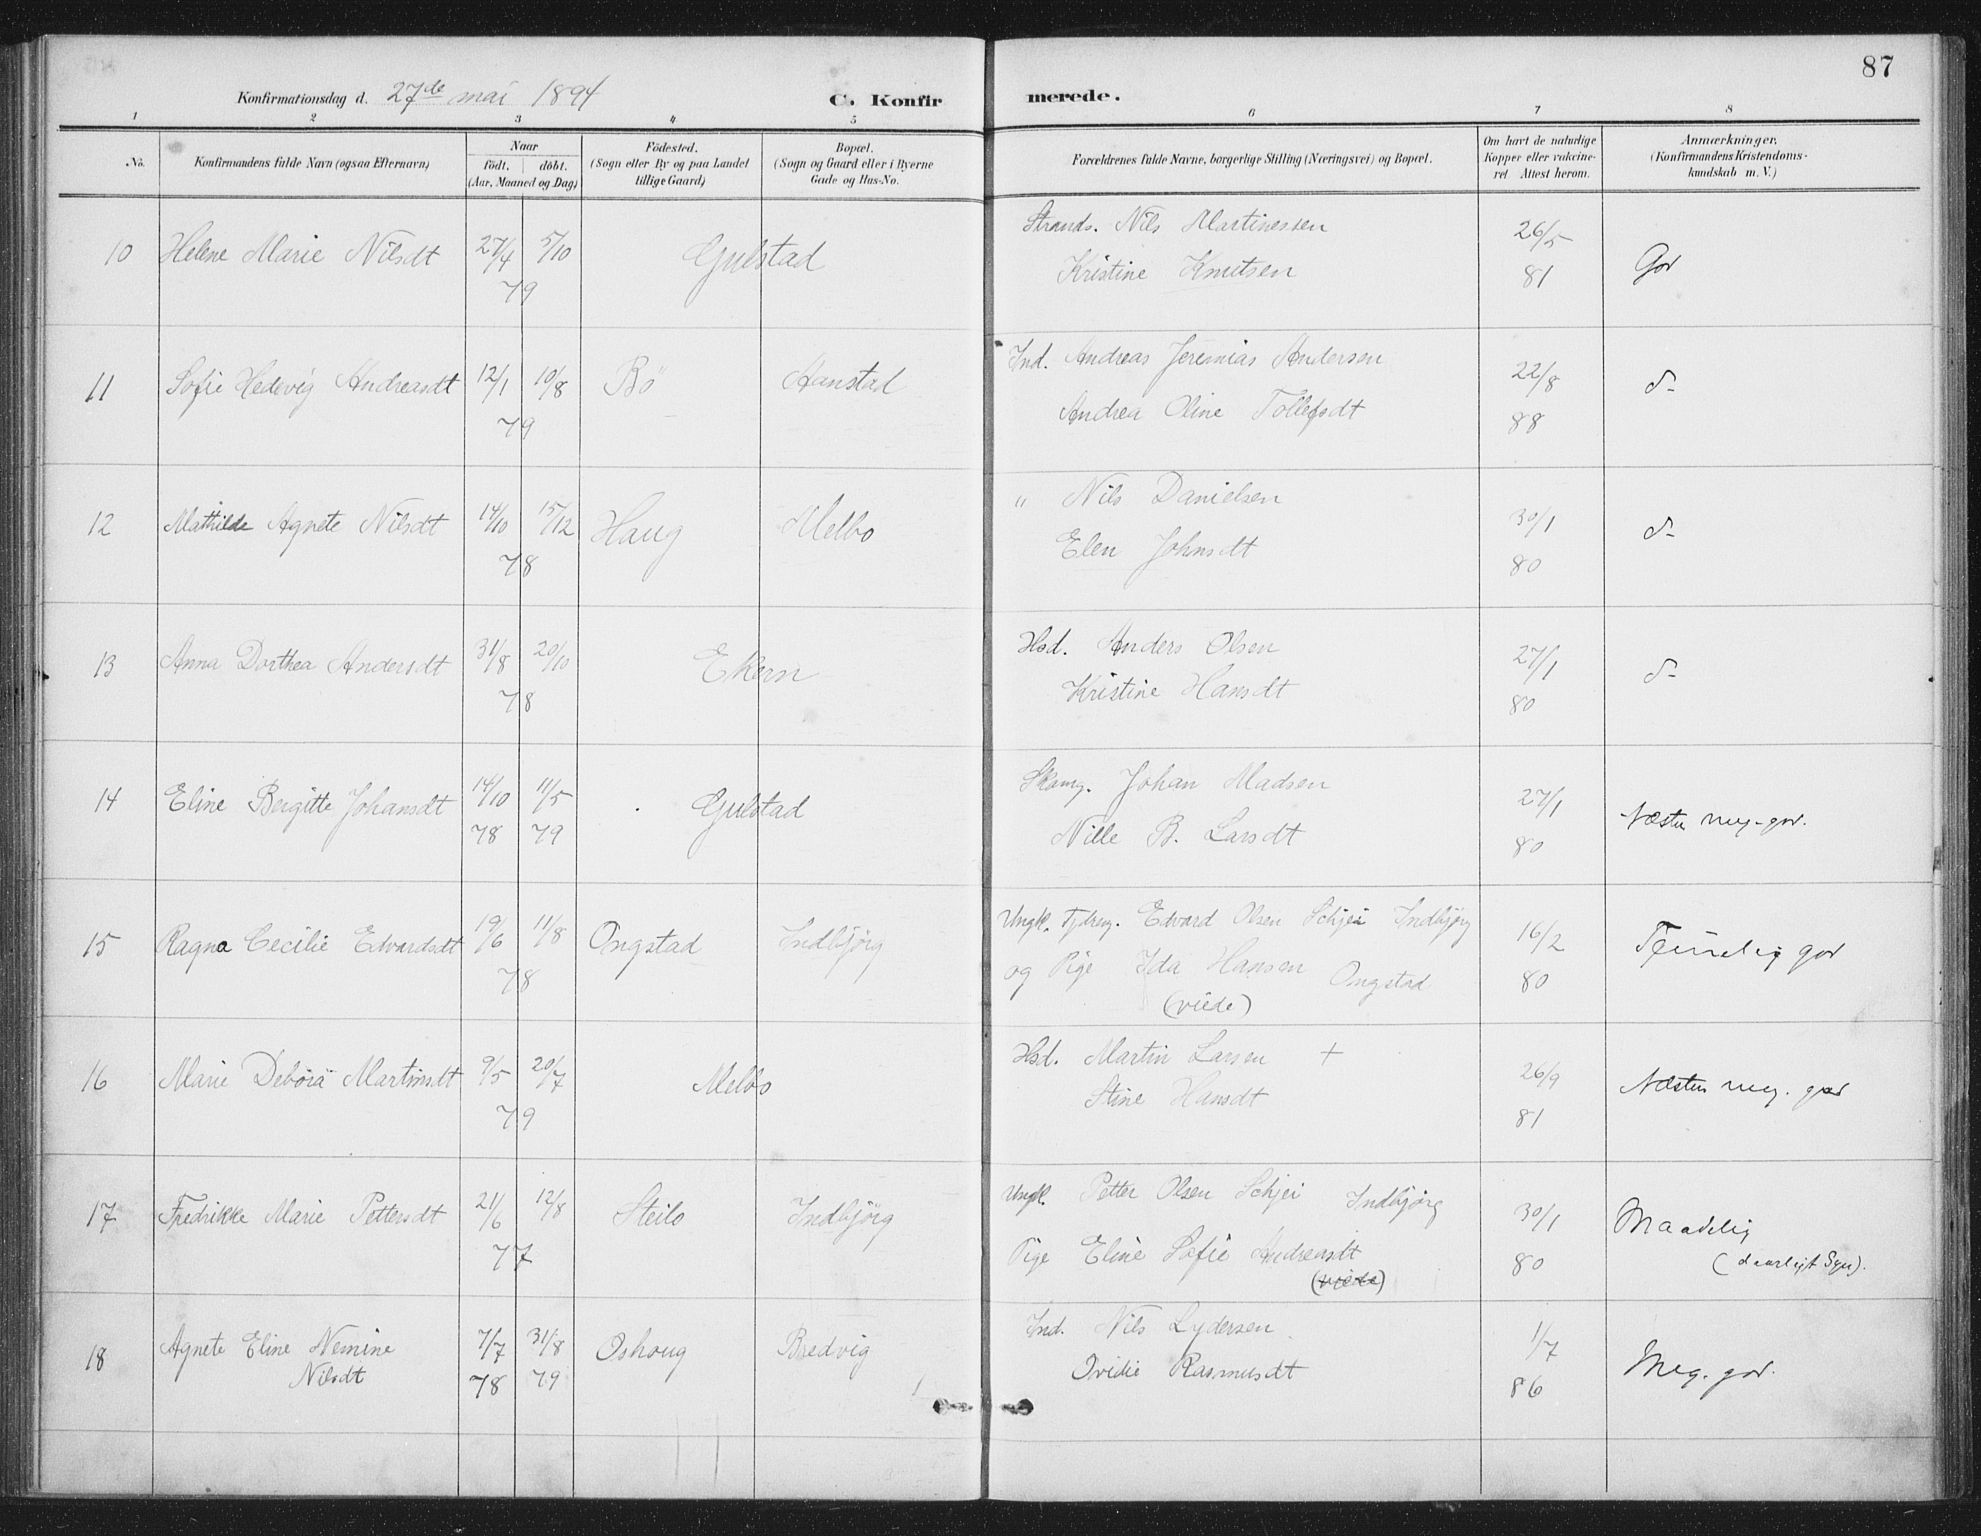 87
Konfirmationsdag d. 27de mai 1894
C. Konfirmerede.
1 2 3 4 5 6 7 8
No.
Konfirmandens fulde Navn (ogsaa Efternavn)
Naar
födt. döbt.
(Aar, Maaned og Dag)
Födested.
(Sogn eller By og paa Landet
tillige Gaard)
Bopæl.
(Sogn og Gaard eller i Byerne
Gade og Hus-No.
Forældrenes fulde Navne, borgerlige Stilling (Næringsvei) og Bopæl.
Om havt de naturlige
Kopper eller vakcine-
ret. Attest herom.
Anmærkninger.
(Konfirmandens Kristendoms-
kundskab m. V.)
10 Helene Marie Nilsdt 27/4 5/10 79 Gulstad
Strands. Nils Martinessen
Kristine Knutsen
26/5 81 God
11 Sofie Hedevig Andreasdt 12/1 10/8 79 Bö Aanstad
Ind. Andreas Jeremias Andersen
Andrea Oline Tollefsdt
22/8 88 d-
12 Mathilde Agnete Nilsdt 14/10 15/12 78 Haug Melbo
" Nils Danielsen
Elen Johnsdt
30/1 80 d-
13 Anna Dorthea Andersdt 31/8 20/10 78 Ekern
Hsd. Anders Olsen
Kristine Hansdt
27/1 80 d-
14 Eline Bergitte Johansdt 14/10 78 11/5 79 Gulstad
Skomg. Johan Madsen
Nille B. Larsdt
27/1 80 Næsten meg. god.
15 Ragna Cecilie Edvardsdt 19/6 11/8 78 Ongstad Indbjörg
Ungk. Edvard Olsen Schjei Indbjörg
og Pige Ida Hansen Ongstad
(viede)
16/2 80 Temmelig god
16 Marie Debora Martinsdt 9/5 20/7 79 Melbo
Hsd. Martin Larsen +
Stine Hansdt
26/9 81 Næsten meg. god
17 Fredrikke Marie Pettersdt 21/6 12/8 77 Steilo Indbjörg
Ungk. Petter Olsen Schjei Indbjörg
Pige Eline Sofie Andreasdt
(viede)
30/1 80 Maadelig
(daarligt Syn).
18 Agnete Eline Nemine
Nilsdt
7/7 78 31/8 79 Oshoug Bredvig
Ind. Nils Lydersen
Ovidie Rasmusdt
1/7 86 Meg. god.